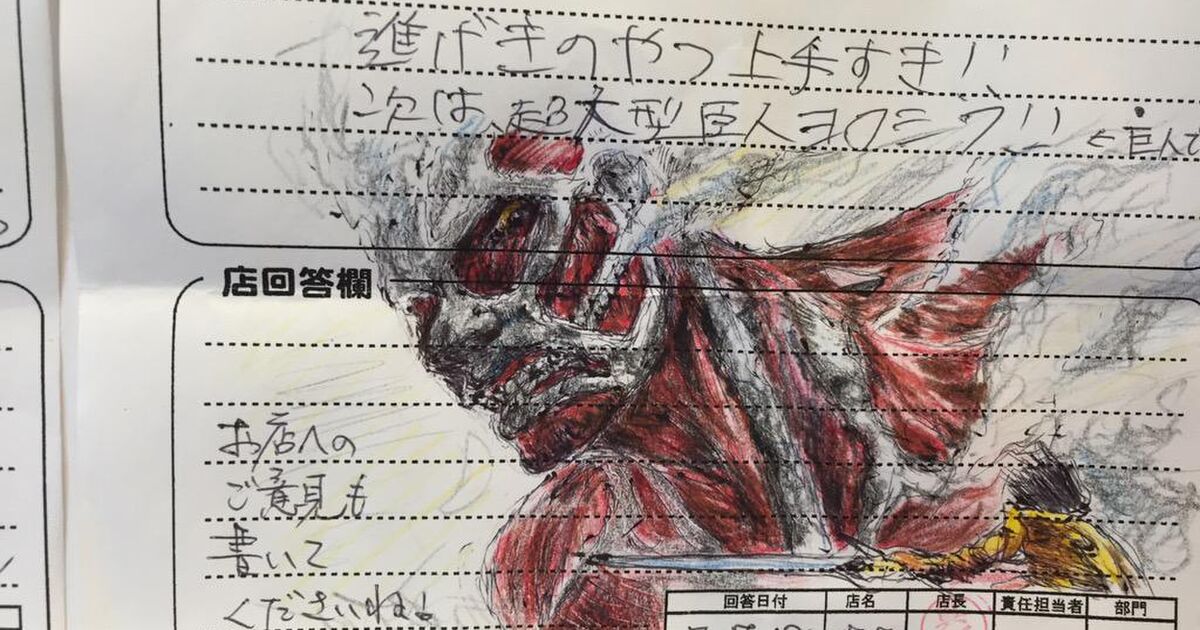 進げきのやつ上手すき!!
次は、超大型巨人ヨロシク!! ←巨人で
店回答欄
お店への
ご意見も
書いて
くださいね!
回答日付 店名 店長 責任担当者 部門